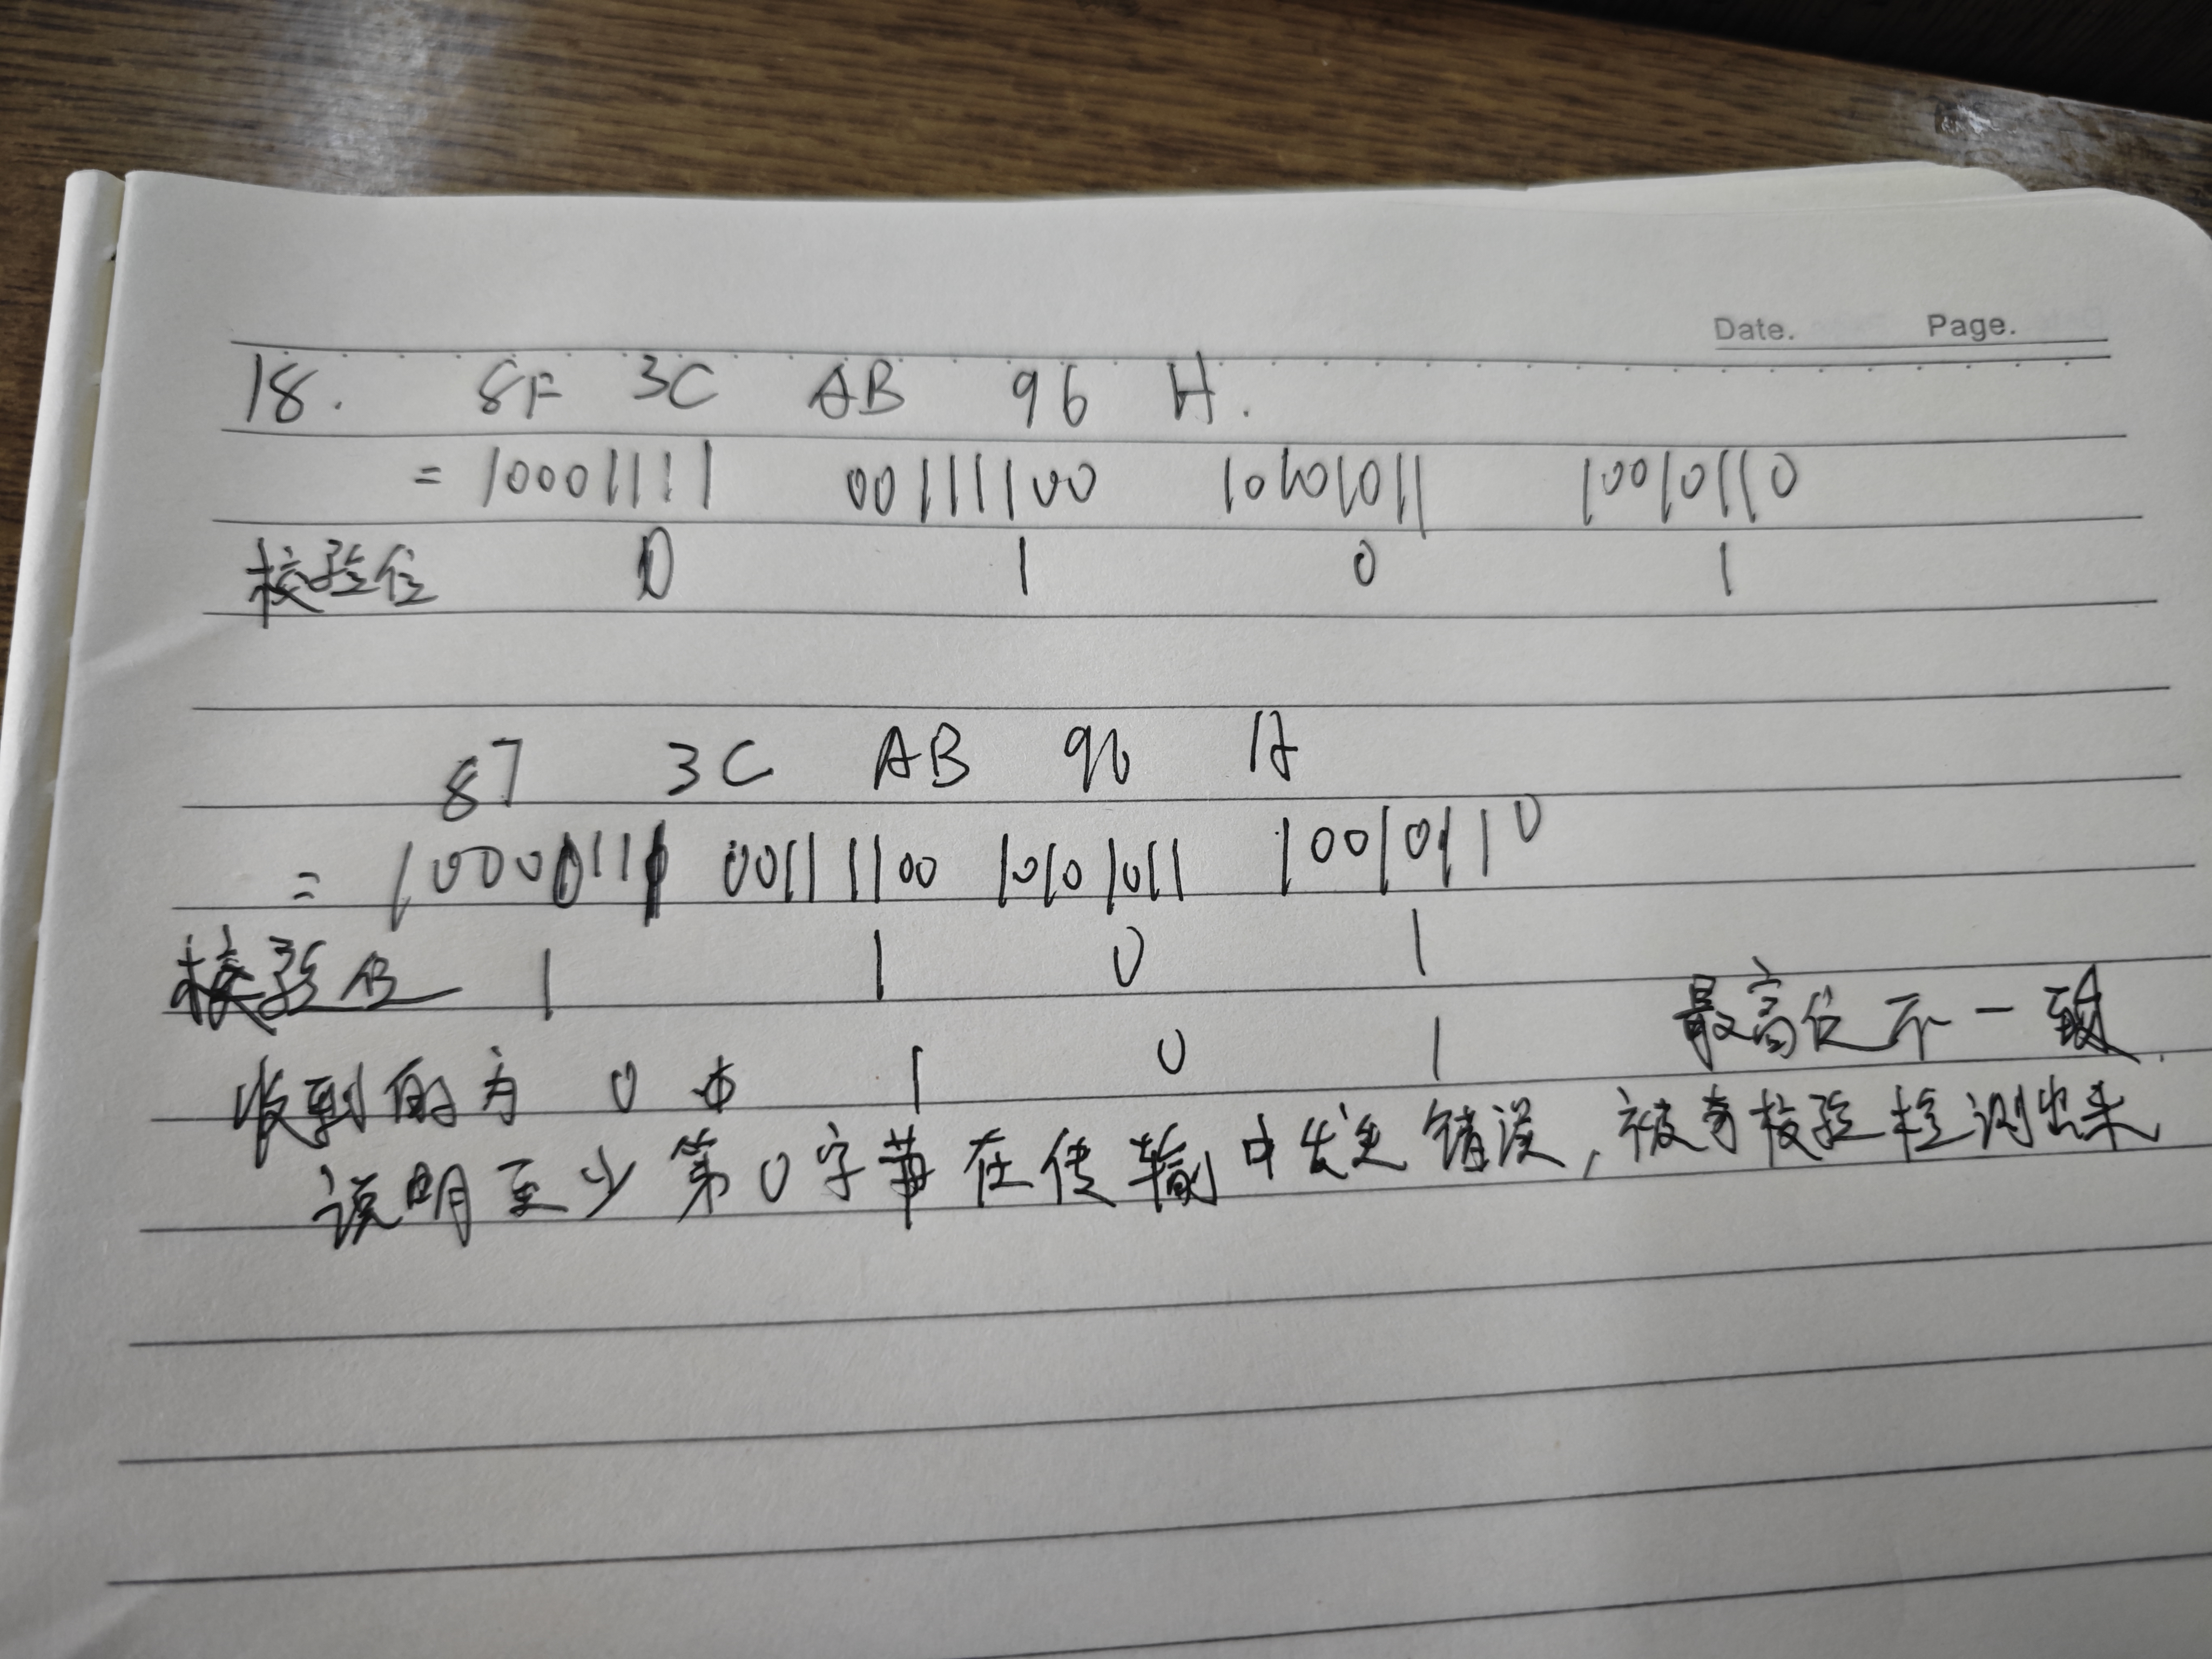 Date. Page.
18. 8F 3C AB 96 H.
= 10001111 00111100 10101011 10010110
校验位 0 1 0 1
87 3C AB 96 H
= 10000111 00111100 10101011 10010110
校验位 1 1 0 1
收到的为 0 1 0 1 最高位不一致.
说明至少第0字节在传输中发生错误,被奇校验检测出来